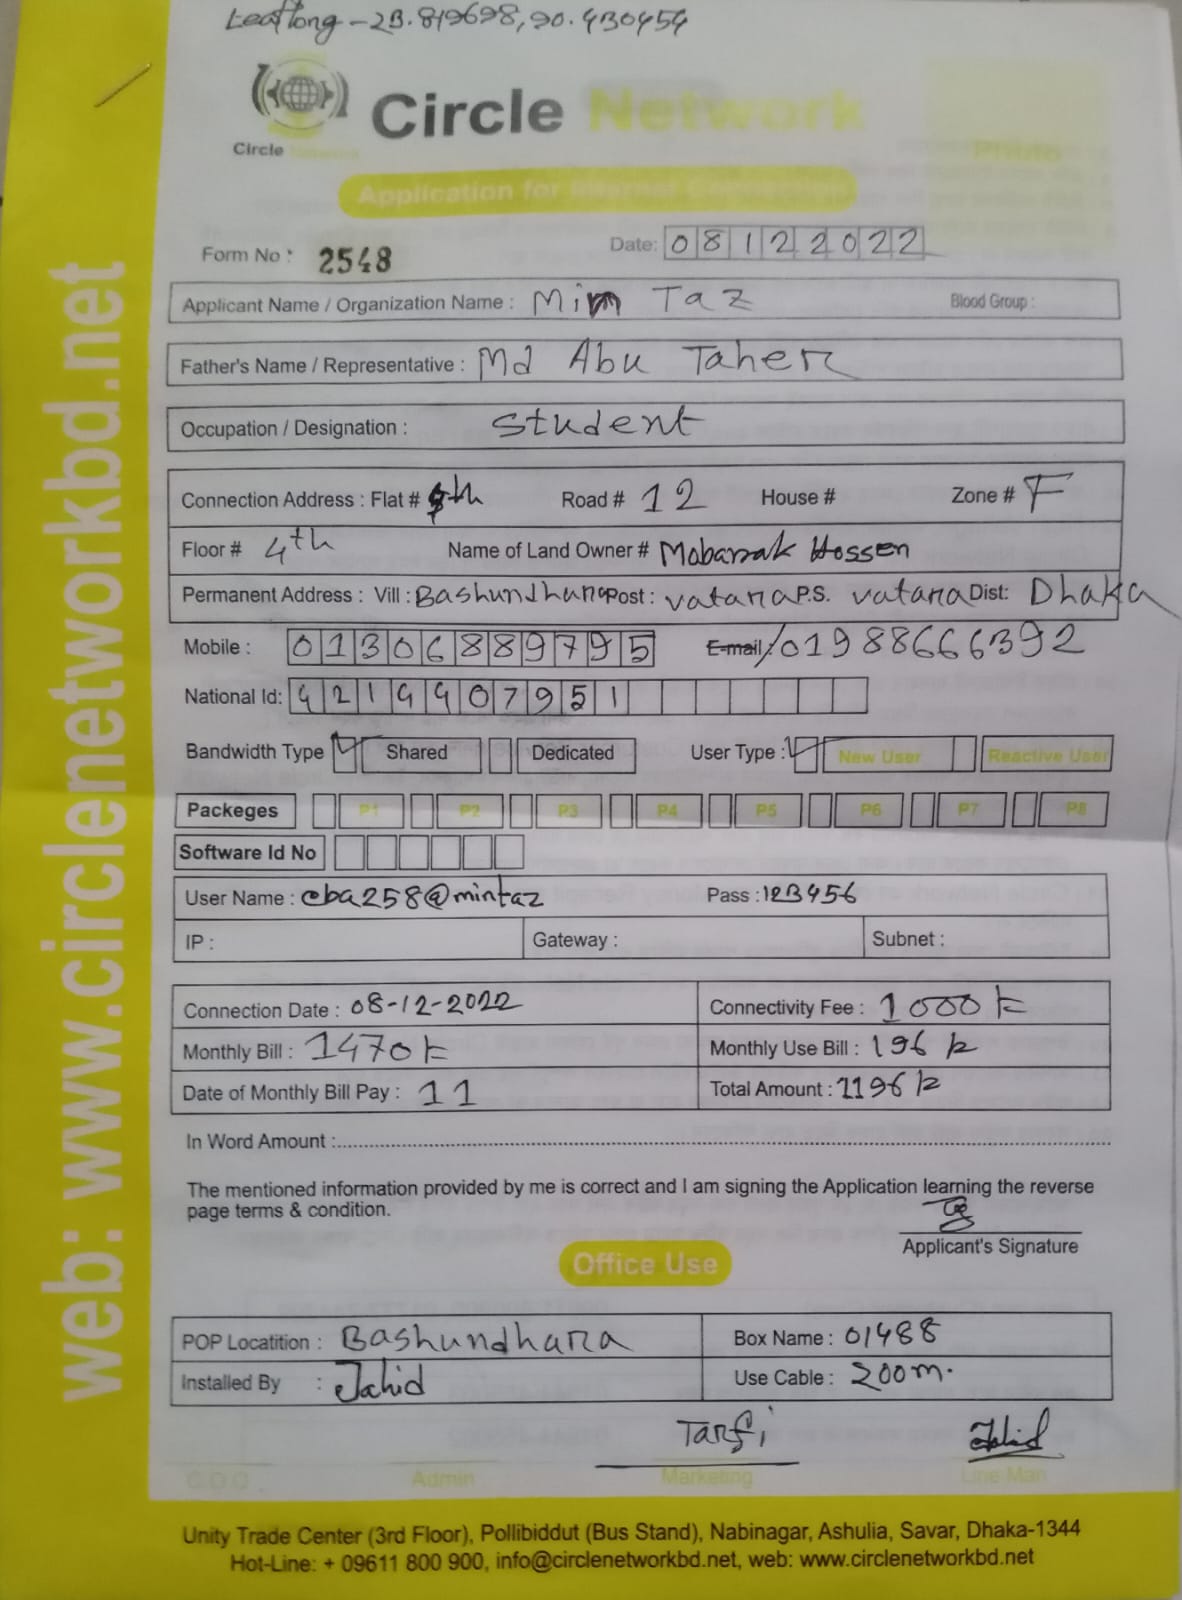 Leaflong - 23.819698, 90.430454
Circle Network
Circle Network
Photo
Application for Internet Connection
Form No : 2548 Date: 08122022
Applicant Name / Organization Name : Mim Taz Blood Group :
Father's Name / Representative : Md Abu Taher
Occupation / Designation : Student
Connection Address : Flat # th Road # 12 House # Zone # F
Floor # 4th Name of Land Owner # Mobarak Hossen
Permanent Address : Vill : Bashundhara Post : vatara P.S. vatara Dist: Dhaka
Mobile : 01306889795 E-mail/01988666392
National Id: 4219907951
Bandwidth Type Shared Dedicated User Type : New User Reactive User
Packeges P1 P2 P3 P4 P5 P6 P7 P8
Software Id No
User Name : cba258@mintaz Pass : 123456
IP : Gateway : Subnet :
Connection Date : 08-12-2022 Connectivity Fee : 1000 tk
Monthly Bill : 1470 tk Monthly Use Bill : 196 tk
Date of Monthly Bill Pay : 11 Total Amount : 1196 tk
In Word Amount :
The mentioned information provided by me is correct and I am signing the Application learning the reverse
page terms & condition.
Applicant's Signature
Office Use
POP Locatition : Bashundhara Box Name : 01488
Installed By : Jahid Use Cable : 200m.
Tarfi Jahid
C.O.O Admin Marketing Line Man
Unity Trade Center (3rd Floor), Pollibiddut (Bus Stand), Nabinagar, Ashulia, Savar, Dhaka-1344
Hot-Line: + 09611 800 900, info@circlenetworkbd.net, web: www.circlenetworkbd.net
web: www.circlenetworkbd.net